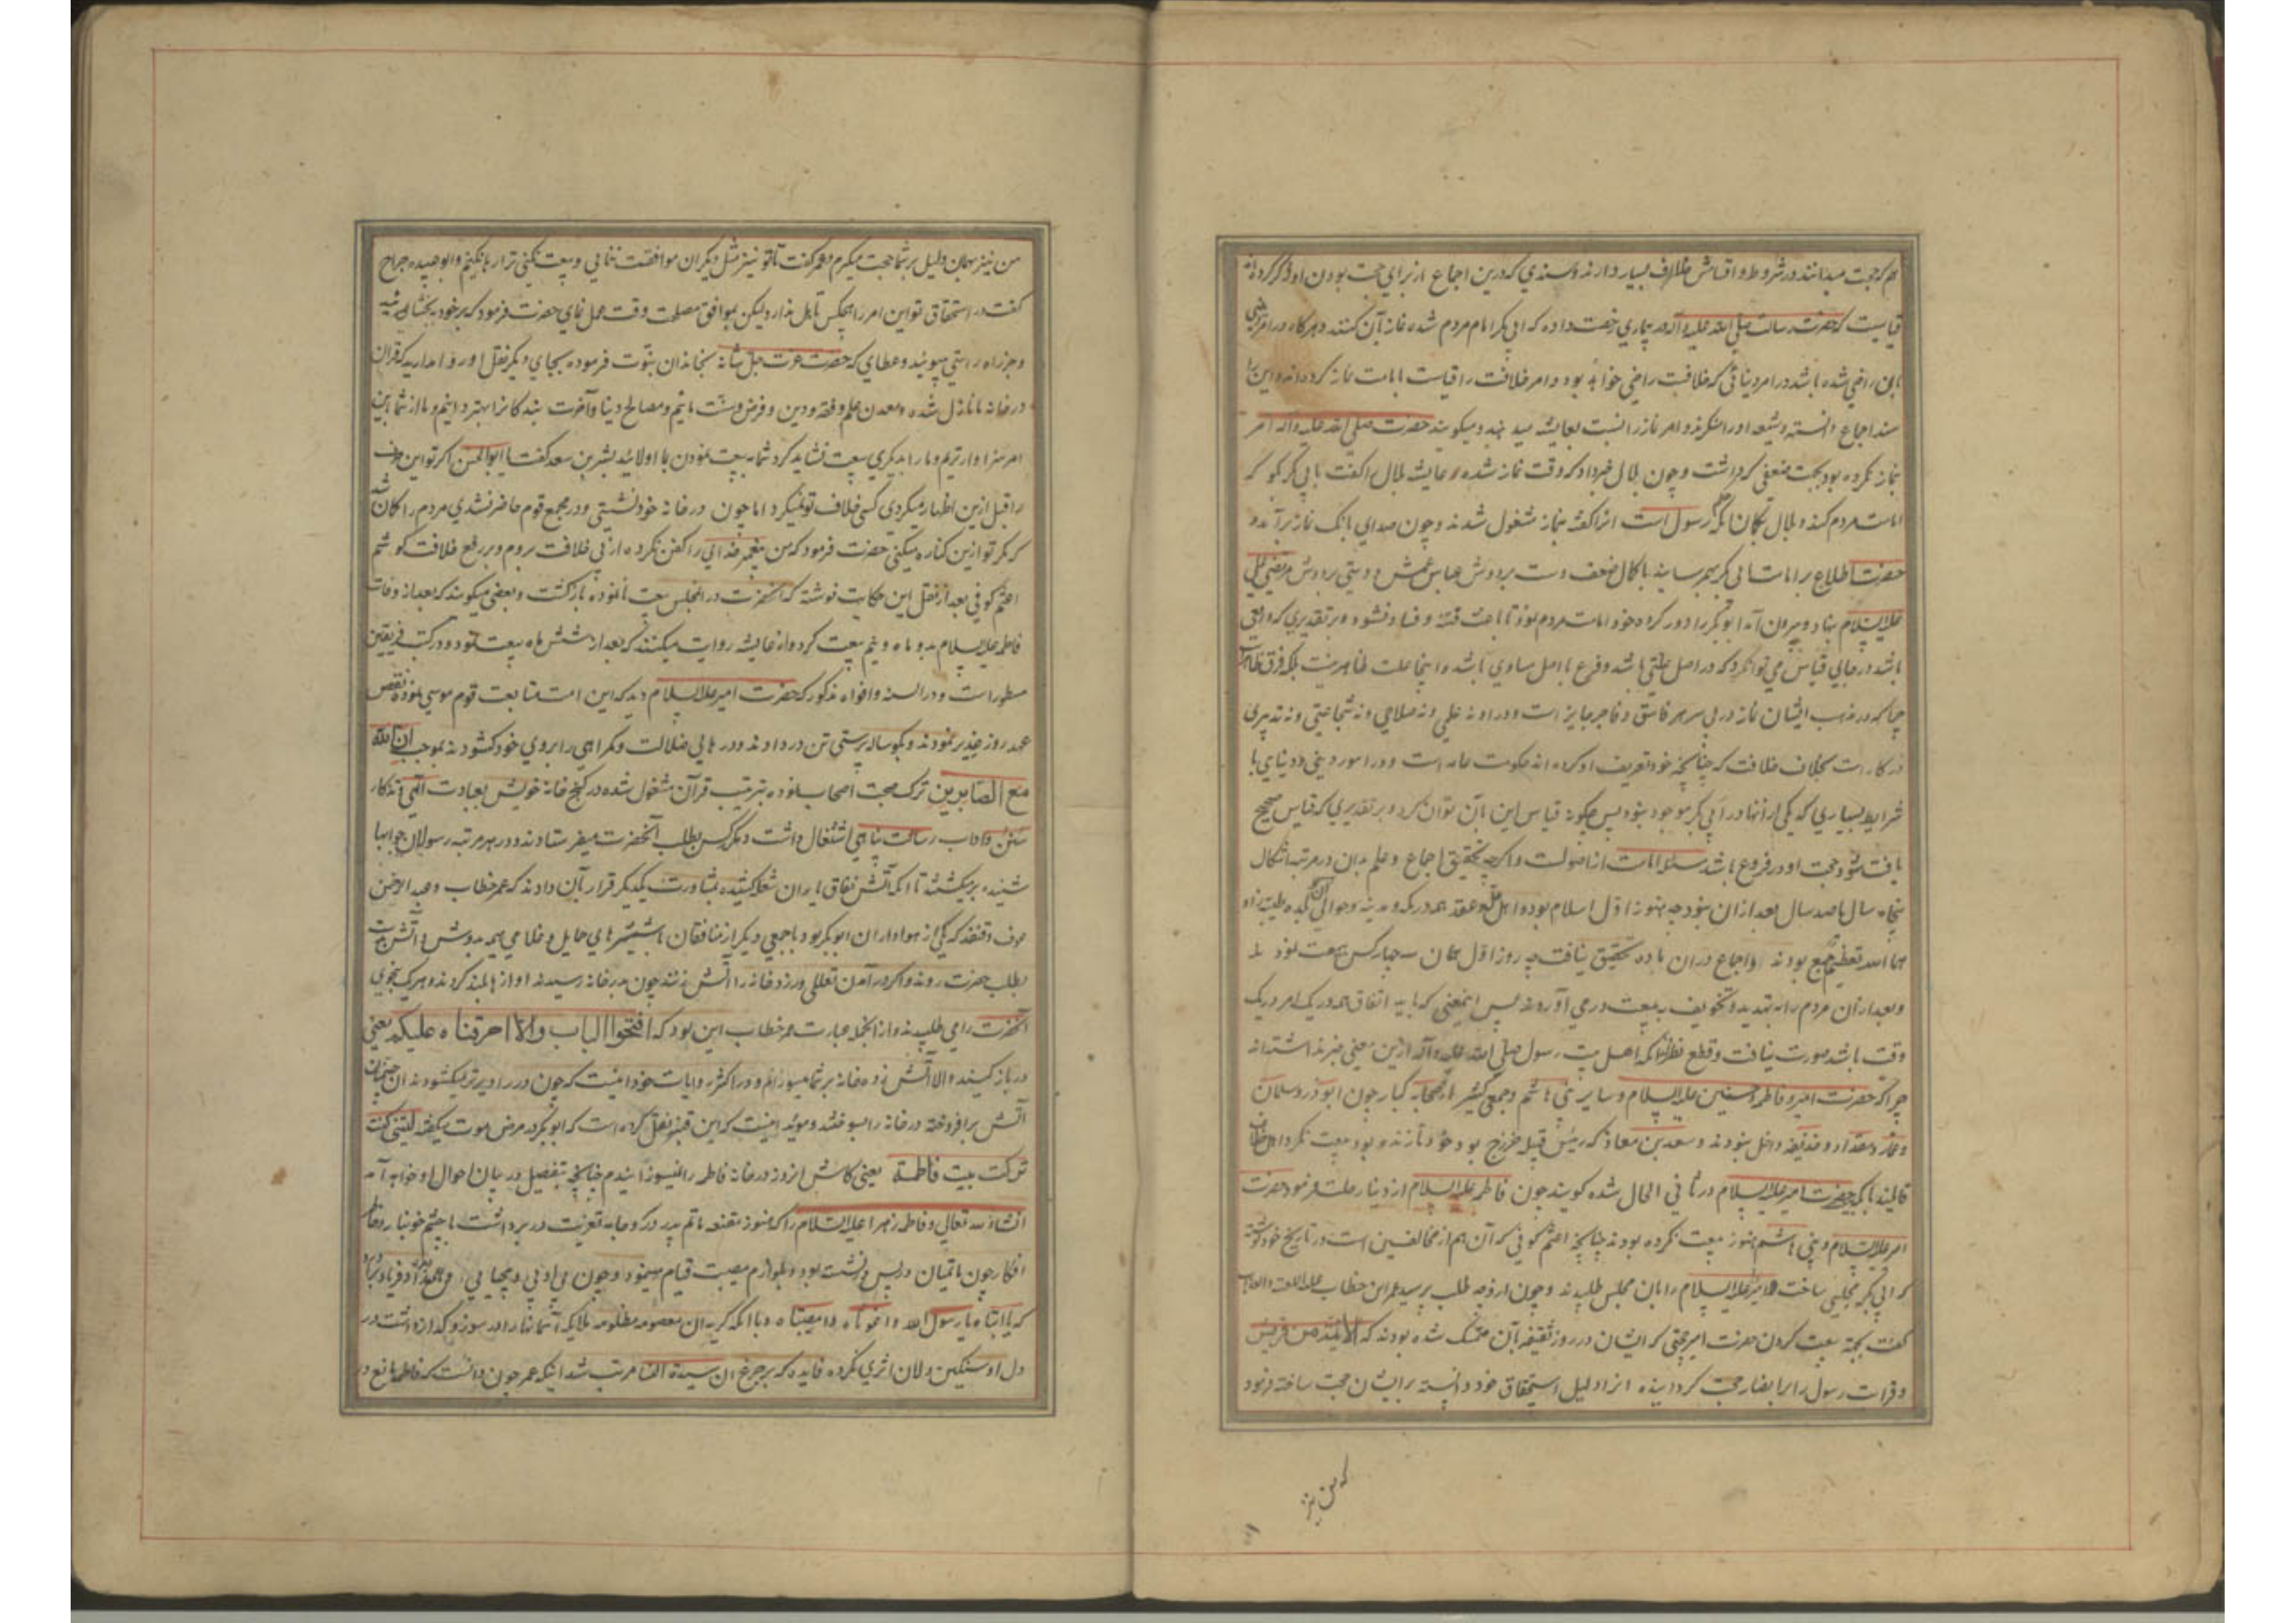 هم که حجت میدانند در شروط و اقسامش خلاف بسیار دارند و سندی که درین اجماع از برای حجت بودن او ذکر کرده‌اند
قیاسیست که حضرت رسالت صلی الله علیه و آله در بیماری رخصت داده که ابی بکر امام مردم شده نماز بآن کنند و هر گاه در امر دینی
باین راضی شده باشد در امر دنیائی که خلافتست راضی خواهد بود و امر خلافت را قیاست بامامت نماز کرده‌اند و این را
سند اجماع دانسته و شیعه او را منکرند و امر نماز را نسبت بعایشه میدهند و میگویند حضرت صلی الله علیه و آله امر
بنماز نکرده بود بجهت ضعفی که داشت و چون بلال خبر داد که وقت نماز شده عایشه بلال را گفت بابی بکر بگو که
امامت مردم کند و بلال بگمان آنکه حکم رسول است او را گفته بنماز مشغول شدند و چون صدای بانک نماز برآمد و
حضرت اطلاع بر امامت ابی بکر بهم رسانید با کمال ضعف دست بر دوش عباس عمش و دستی بر دوش مرتضی علی
علیه السلام نهاد و بیرون آمد ابوبکر را دور کرده خود امامت مردم نمود تا باعث فتنه و فساد نشود و بر تقدیری که واقعی
باشد در جایی قیاس می توان کرد که در اصل علتی باشد و فرع با اصل مساوی باشد و اینجا علت ظاهر نیست بلکه فرق ظاهرست
چرا که در مذهب ایشان نماز در پی سر هر فاسق و فاجر جایز است و در او نه علمی و نه صلاحی و نه شجاعتی و نه تدبیری
در کار است بخلاف خلافت که چنانچه خود تعریف او کرده‌اند حکومت عامه است و در امور دینی و دنیایی با
شرایط بسیاری که یکی از آنها در ابی بکر موجود نبود پس چگونه قیاس این بآن توان کرد و بر تقدیری که قیاس صحیح
یافت شود حجت او در فروع باشد مسئله امامت از اصولست و اگر چه تحقیق اجماع و علم بدان در مرتبه اشکال
پنجاه سال یا صد سال بعد از آن نبود چه هنوز اول اسلام بود و اهل حل و عقد همه در مکه و مدینه و حوالی آن
جمع بودند اما اجماع دران ماده تحقیق نیافت چه روز اول همان سه چهار کس بیعت نمودند
و بعد از آن مردم را به تهدید و تخویف به بیعت در می آوردند پس اینمعنی که باید اتفاق همه در یک امر در یک
وقت باشد صورت نیافت و قطع نظر از آنکه اهل بیت رسول صلی الله علیه و آله ازین معنی خبر نداشتند
چرا که حضرت امیر و فاطمه و حسنین علیه السلام و سایر بنی هاشم و جمعی کثیر از صحابه کبار چون ابوذر و سلمان
و عمار و مقداد و حذیفه داخل نبودند و سعد بن معاذ که رئیس قبیله خزرج بود خود تا زنده بود بیعت نکرد و اهل خلاف
قایلند بآنکه حضرت امیر علیه السلام در ثانی الحال شده گویند چون فاطمه علیه السلام از دنیا رحلت فرمود حضرت
امیر علیه السلام و بنی هاشم هنوز بیعت نکرده بودند چنانچه اعثم کوفی که آن هم از مخالفین است در تاریخ خود نوشته
که ابی بکر مجلسی ساخت و امیر علیه السلام را بان مجلس طلبید و چون او وجه طلب پرسید عمر ابن خطاب علیه اللعنه و العذاب
گفت بجهة بیعت کردن حضرت امیر حجتی که ایشان در روز ثقیفه بآن متمسک شده بودند که الائمة من قریش
و قرابت رسول را بر انصار حجت گردانیده آنرا دلیل استحقاق خود دانسته بر ایشان حجت ساخته فرمود
که من نیز
من نیز بهمان دلیل بر شما حجت میگیرم و عمر گفت تا تو نیز مثل دیگران موافقت ننمایی و بیعت نکنی ترا رها نکنیم و ابو عبیده جراح
گفت در استحقاق تو این امر را هیچکس تامل ندارد ولیکن بموافق مصلحت وقت عمل نمای حضرت فرمود که بر خود ببخشائید
و جز راه راستی مپوئید و عطای که حضرت عزت جل شانه بخاندان نبوت فرموده بجای دیگر نقل او روا مدارید که قرآن
در خانه ما نازل شده و معدن علم و فقه و دین و فرض و سنت مائیم و مصالح دنیا و آخرت بندگان را بهتر دانیم و ما از شما باین
امر سزاوارتریم و ما را بدیگری بیعت نشاید کرد شما به بیعت نمودن با ما اولائید بشر بن سعد گفت یا ابوالحسن اگر تو این حرف
را قبل ازین اظهار میکردی کسی خلاف تو نمیکرد اما چون در خانه خود نشستی و در مجمع قوم حاضر نشدی مردم را گمان شد
که مگر تو ازین کناره میکنی حضرت فرمود که من پیغمبر خدائی را کفن نکرده از پی خلافت بروم و بر رفع خلافت کوشم
اعثم کوفی بعد از نقل این حکایت نوشته که آنحضرت در آنمجلس بیعت نانموده بازگشت و بعضی میگویند که بعد از وفات
فاطمه علیه السلام بدو ماه و نیم بیعت کرد و از عایشه روایت میکنند که بعد از شش ماه بیعت نمود و در کتب فریقین
مسطور است و در السنه و افواه مذکور که حضرت امیر علیه السلام دید که این امت متابعت قوم موسی نموده نقض
عهد روز غدیر نمودند و بگوساله پرستی تن در دادند و درهای ضلالت و گمراهی را بروی خود گشودند بموجب ان الله
مع الصابرین ترک صحبت اصحاب نموده بترتیب قرآن مشغول شده در کنج خانه خویش بعبادت الهی و تذکار
سنن و آداب رسالت پناهی اشتغال داشت دیگر کس بطلب آنحضرت میفرستادند و در هر مرتبه رسولان جوابها
شنیده بر میگشتند تا آنکه آتش نفاق یاران شعله کشیده بمشاورت یکدیگر قرار بآن دادند که عمر خطاب و عبد الرحمن
عوف و قنفذ که یکی از هواداران ابوبکر بود با جمعی دیگر از منافقان با شمشیرهای حمایل و غلامی هیمه بدوش و آتش بدست
بطلب حضرت روند و اگر در آمدن تعللی ورزد خانه را آتش زنند چون بدر خانه رسیدند آواز بلند کردند و هر یک بنحوی
آنحضرت را می طلبیدند و از آنجمله عبارت عمر خطاب این بود که افتحوا الباب والا احرقناه علیکم یعنی
در باز کنید والا آتش زده خانه بر شما میسوزانم و در اکثر روایات خود اینست که چون در را دیرتر میگشودند آن
آتش برافروخته در خانه را بسوختند و موید اینست که ابن قتیبه نقل کرده است که ابوبکر در مرض موت میگفته لیتنی کنت
ترکت بیت فاطمة یعنی کاش آنروز در خانه فاطمه را نمیسوزانیدم چنانچه بتفصیل در بیان احوال او خواهد آمد
انشاءالله تعالی و فاطمه زهرا علیها السلام را که هنوز مقنعه ماتم پدر در سر و جامه تعزیت در بر داشت با چشم خونبار و خاطر
افکار چون ماتمیان در پس در نشسته بود و بلوازم مصیبت قیام مینمود و چون بی ادبی و بیحیایی عمر دید فریاد برآورد
که یا ابتاه یا رسول الله وا غوثاه وا مصیبتاه و با آنکه گریه آن معصومه مظلومه ملایکه آسمانها را در سوز و گداز داشت در
دل او سنگین دلان اثری نکرده فایده که بر جزع آن سیدة النسا مرتب شد اینکه عمر چون دانست که فاطمه مانع در